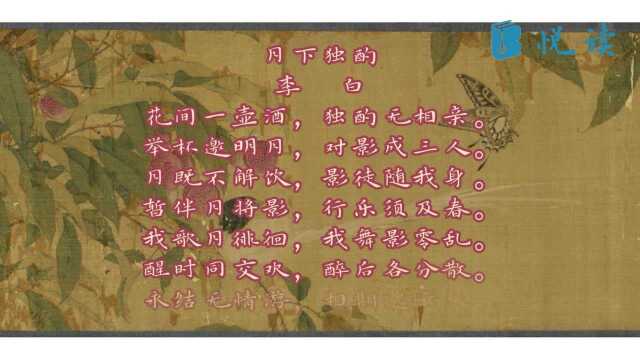 悦读
月下独酌
李 白
花间一壶酒，独酌无相亲。
举杯邀明月，对影成三人。
月既不解饮，影徒随我身。
暂伴月将影，行乐须及春。
我歌月徘徊，我舞影零乱。
醒时同交欢，醉后各分散。
永结无情游，相期